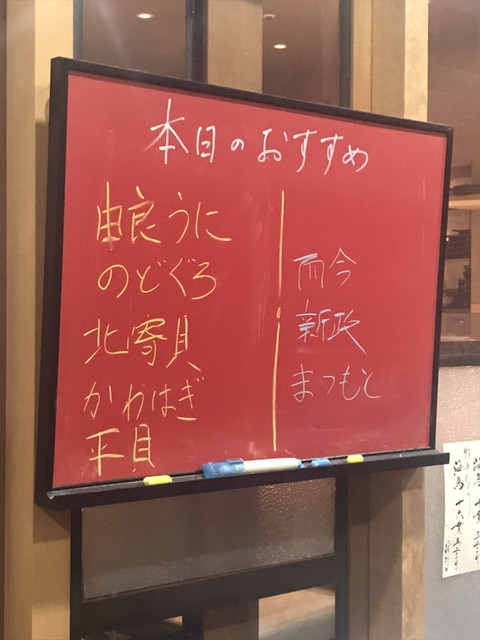 本日のおすすめ
由良うに
のどぐろ
北寄貝
かわはぎ
平貝
而今
新政
まつもと